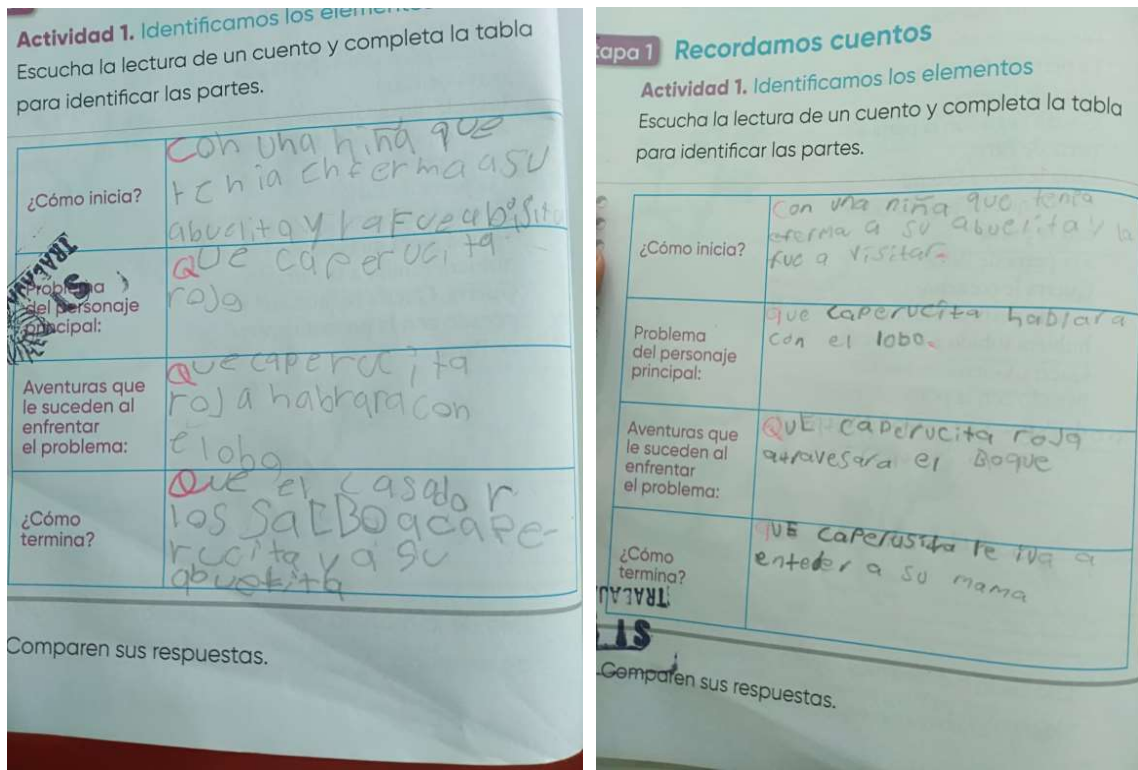 Actividad 1. Identificamos los elemen
Escucha la lectura de un cuento y completa la tabla
para identificar las partes.
¿Cómo inicia?
con una niña que
tenia enferma a su
abuelita y la fue a bisita
Problema
del personaje
principal:
Que caperucita
roja
Aventuras que
le suceden al
enfrentar
el problema:
Que caperucita
roja habrara con
e loba
¿Cómo
termina?
Que el casador
los SalBo a cape-
rucita y a su
abuelita
Comparen sus respuestas.
tapa 1 Recordamos cuentos
Actividad 1. Identificamos los elementos
Escucha la lectura de un cuento y completa la tabla
para identificar las partes.
¿Cómo inicia?
Con una niña que tenia
eferma a su abuelita y la
fue a visitar.
Problema
del personaje
principal:
que caperucita hablara
con el lobo.
Aventuras que
le suceden al
enfrentar
el problema:
QUE caperucita roja
atravesara el Boque
¿Cómo
termina?
QUE caperusita le iva a
enteder a su mama
TRALAJ
ST
Comparen sus respuestas.